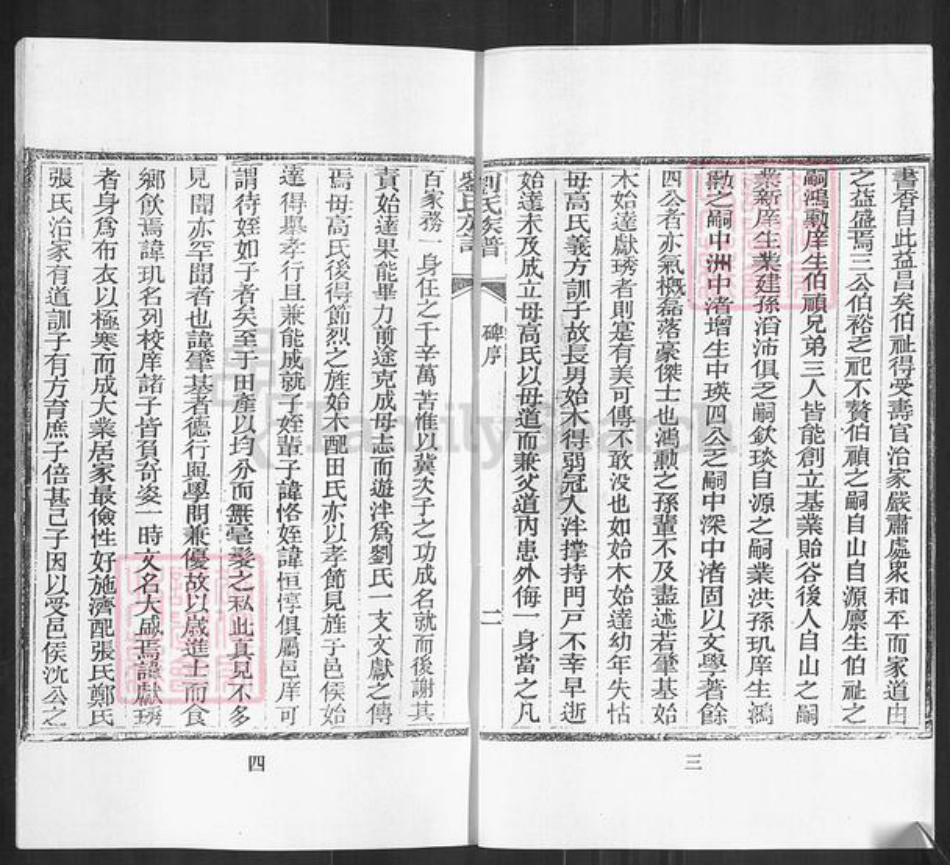 書香自此益昌矣伯祉得受壽官治家嚴肅處衆和平而家道由
之益盛焉三公伯裕之祀不贅伯禎之嗣自山自源廪生伯祉之
嗣鴻勳庠生伯禎兄弟三人皆能創立基業貽谷後人自山之嗣
業新庠生業建孫滔沛俱乏嗣欽琰自源之嗣業洪孫玑庠生鴻
勳之嗣中洲中渚增生中瑛四公乏嗣中深中渚固以文學著餘
四公者亦氣概磊落豪傑士也鴻勳之孫輩不及盡述若肇基始
木始達獻琇者則寔有美可傳不敢没也如始木始達幼年失怙
毋高氏義方訓子故長男始木得弱冠入泮撑持門戸不幸早逝
始達未及成立毋高氏以毋道而兼父道内患外侮一身當之凡
劉氏族譜
碑序
二
百家務一身任之千辛萬苦惟以冀次子之功成名就而後謝其
責始達果能畢力前途克成毋志而遊泮爲劉氏一支文獻之傳
焉毋高氏後得節烈之旌始木配田氏亦以孝節見旌子邑侯始
達得舉孝行且兼能成就子姪輩子諱恪姪諱恒惇俱屬邑庠可
謂待姪如子者矣至于田產以均分而無毫髮之私此真見不多
見聞亦罕聞者也諱肇基者德行與學問兼優故以歲進士而食
鄉飲焉諱玑名列校庠諸子皆負奇姿一時文名大盛焉諱獻琇
者身爲布衣以極寒而成大業居家最儉性好施濟配張氏鄭氏
張氏治家有道訓子有方育庶子倍甚己子因以受邑侯沈公之
三
四
FamilySearch